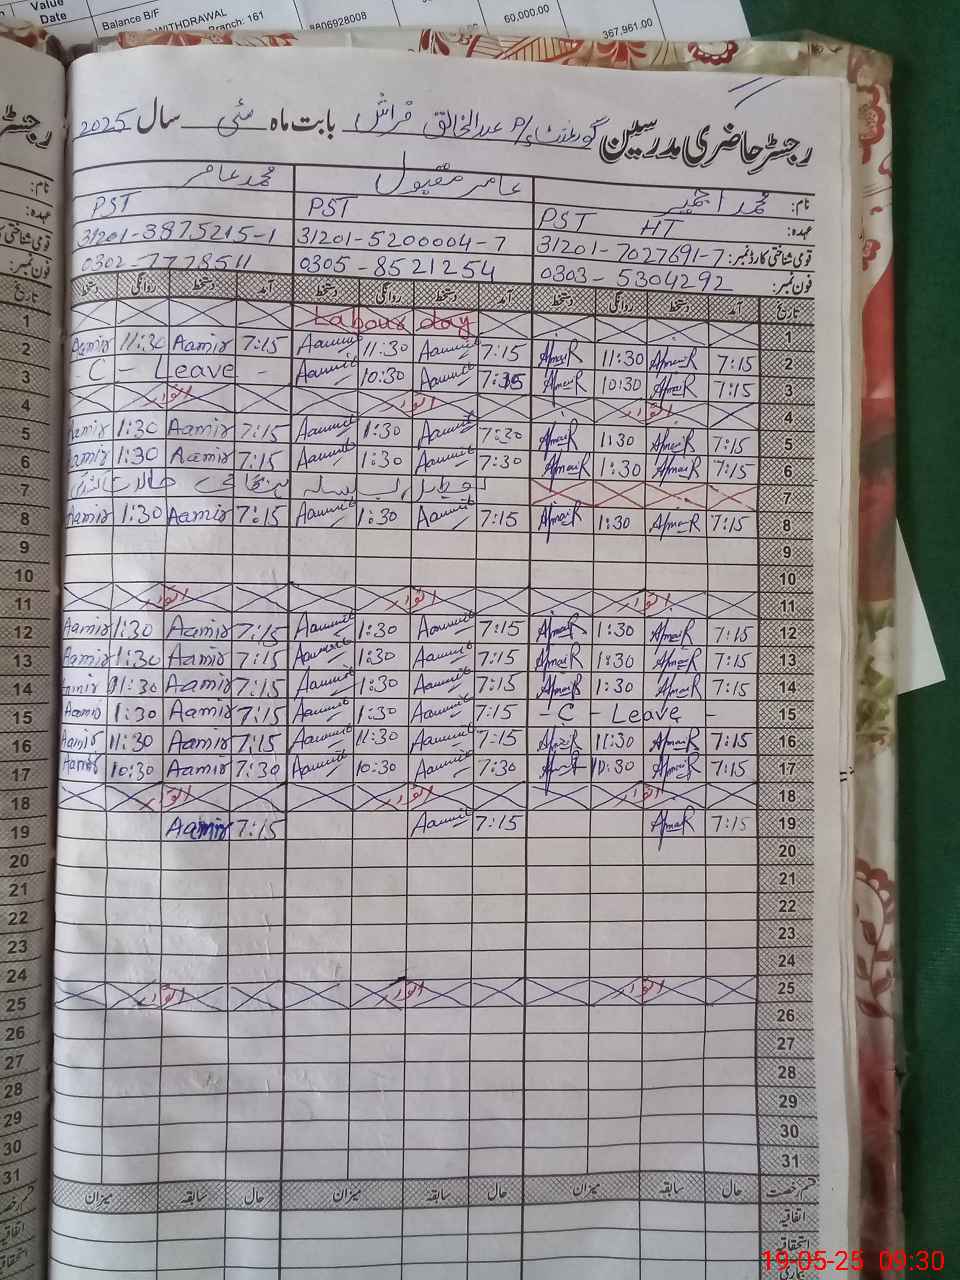 Value
Date
Balance B/F
WITHDRAWAL
Branch: 161
8806928008
60,000.00
367,961.00
رجسٹر حاضری مدرسین گورنمنٹ p/s عبدالخالق فراش بابت ماہ مئی سال 2025
نام: محمد اجمیر عامر مقبول محمد عامر
عہدہ: PST HT PST PST
قومی شناختی کارڈ نمبر: 31201-7027691-7 31201-5200004-7 31201-3875215-1
فون نمبر: 0303-5304292 0305-8521254 0302-7778511
تاریخ آمد دستخط روانگی دستخط آمد دستخط روانگی دستخط آمد دستخط روانگی دستخط
1 Labour day
2 7:15 AjmaiR 11:30 AjmaiR 7:15 Aamir 11:30 Aamir 7:15 Aamir 11:30 Aamir
3 7:15 AjmaiR 10:30 AjmaiR Aamir 10:30 Aamir - C - Leave -
4 اتوار اتوار اتوار
5 7:15 AjmaiR 1:30 AjmaiR 7:30 Aamir 1:30 Aamir 7:15 Aamir 1:30 Aamir
6 7:15 AjmaiR 1:30 AjmaiR 7:30 Aamir 1:30 Aamir 7:15 Aamir 1:30 Aamir
7 تعطیل بسلسلہ ہنگامی حالات
8 7:15 AjmaiR 1:30 AjmaiR 7:15 Aamir 1:30 Aamir 7:15 Aamir 1:30 Aamir
9
10
11 اتوار اتوار اتوار
12 7:15 AjmaiR 1:30 AjmaiR 7:15 Aamir 1:30 Aamir 7:15 Aamir 1:30 Aamir
13 7:15 AjmaiR 1:30 AjmaiR 7:15 Aamir 1:30 Aamir 7:15 Aamir 1:30 Aamir
14 7:15 AjmaiR 1:30 AjmaiR 7:15 Aamir 1:30 Aamir 7:15 Aamir 1:30 Aamir
15 - C - Leave - 7:15 Aamir 1:30 Aamir 7:15 Aamir 1:30 Aamir
16 7:15 AjmaiR 11:30 AjmaiR 7:15 Aamir 11:30 Aamir 7:15 Aamir 11:30 Aamir
17 7:15 AjmaiR 10:30 AjmaiR 7:30 Aamir 10:30 Aamir 7:30 Aamir 10:30 Aamir
18 اتوار اتوار اتوار
19 7:15 AjmaiR 7:15 Aamir 7:15 Aamir
20
21
22
23
24
25 اتوار اتوار اتوار
26
27
28
29
30
31
قسم رخصت حال سابقہ میزان حال سابقہ میزان حال سابقہ میزان
اتفاقیہ
استحقاقی
19-05-25 09:30